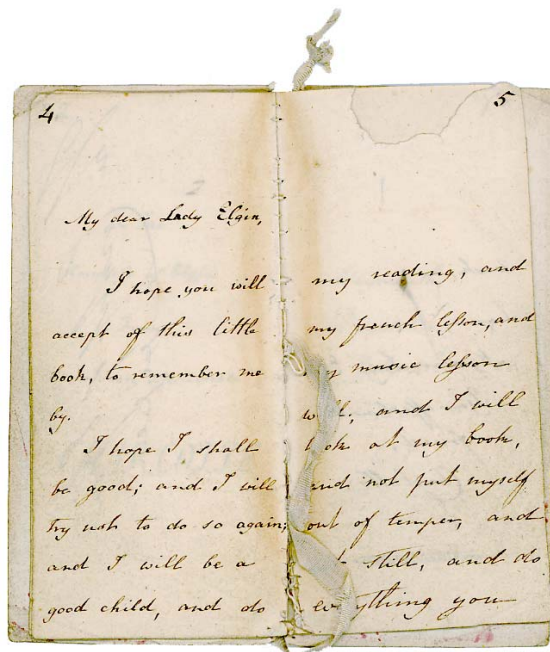 4
My dear Lady Elgin,
I hope you will
accept of this little
book, to remember me
by.
I hope I shall
be good; and I will
try not to do so again;
and I will be a
good child, and do
5
my reading, and
my french lesson, and
my music lesson
well; and I will
look at my book,
and not put myself
out of temper, and
still, and do
everything you